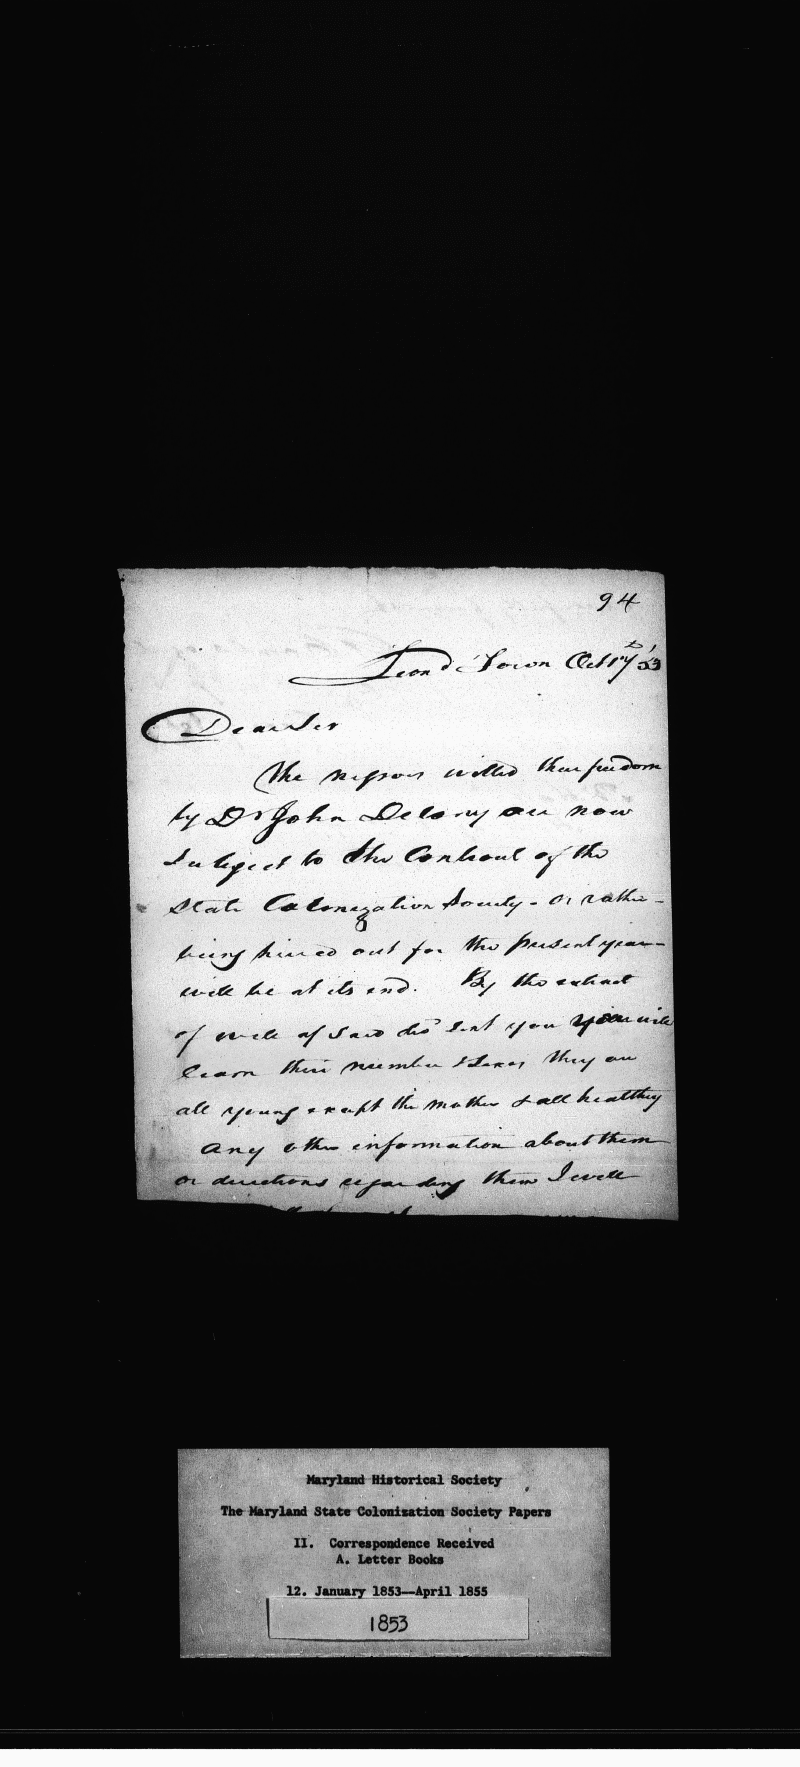 94
Leond Town Oct 17th '53
Dear Sir
The negroes willed their freedom
by Dr John Delany are now
Subject to the Controul of the
State Colonization Society - or rather
being hired out for the present year
will be at its end. By the extract
of will of Said decd sent you you will
learn their number & sexes they are
all young except the mother & all healthy
Any other information about them
or directions regarding them I will
Maryland Historical Society
The Maryland State Colonization Society Papers
II. Correspondence Received
A. Letter Books
12. January 1853--April 1855
1853